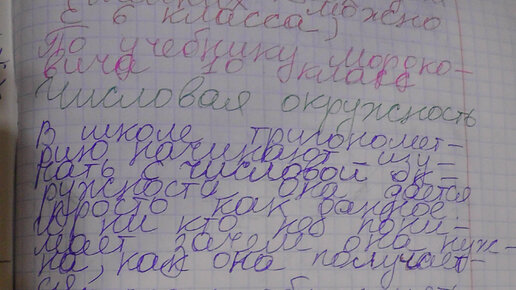 можно
с 6 класса)
По учебнику Мордко-
вича 10 класс
Числовая окружность
В школе тригономет-
рию начинают изу-
чать с числовой ок-
ружности она дается
просто как данное
и ни кто не пони-
мает зачем она нуж-
на, как она получает-